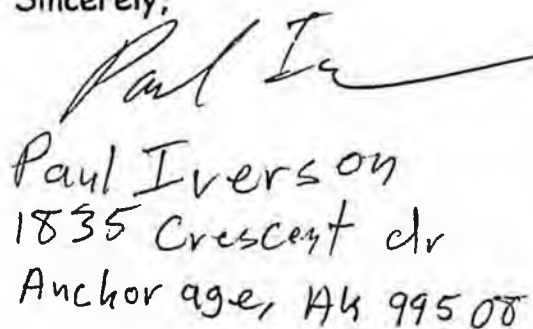 Sincerely,
Paul I
Paul Iverson
1835 Crescent dr
Anchorage, AK 99508